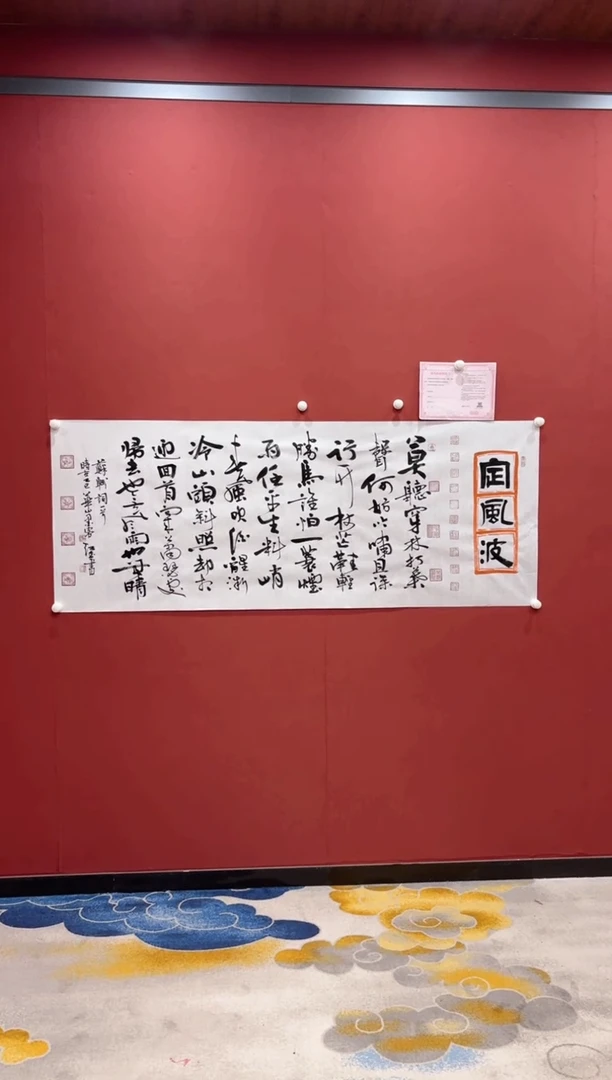 定風波
莫聽穿林打葉
聲何妨吟嘯且徐
行竹杖芒鞋輕
勝馬誰怕一蓑煙
雨任平生料峭
春風吹酒醒微
冷山頭斜照却相
迎回首向來蕭瑟處
歸去也無風雨也無晴
蘇軾詞一首